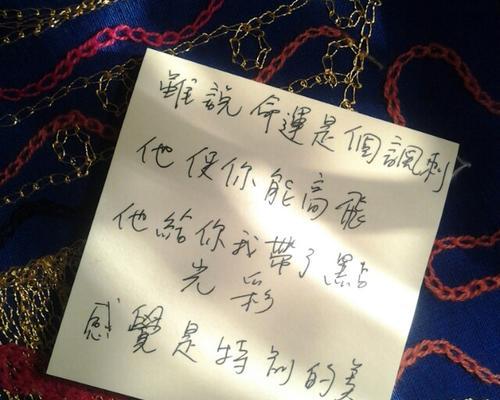 雖說命運是個諷刺
他促你能高飛
他給你我帶了點
光彩
感覺是特別的美